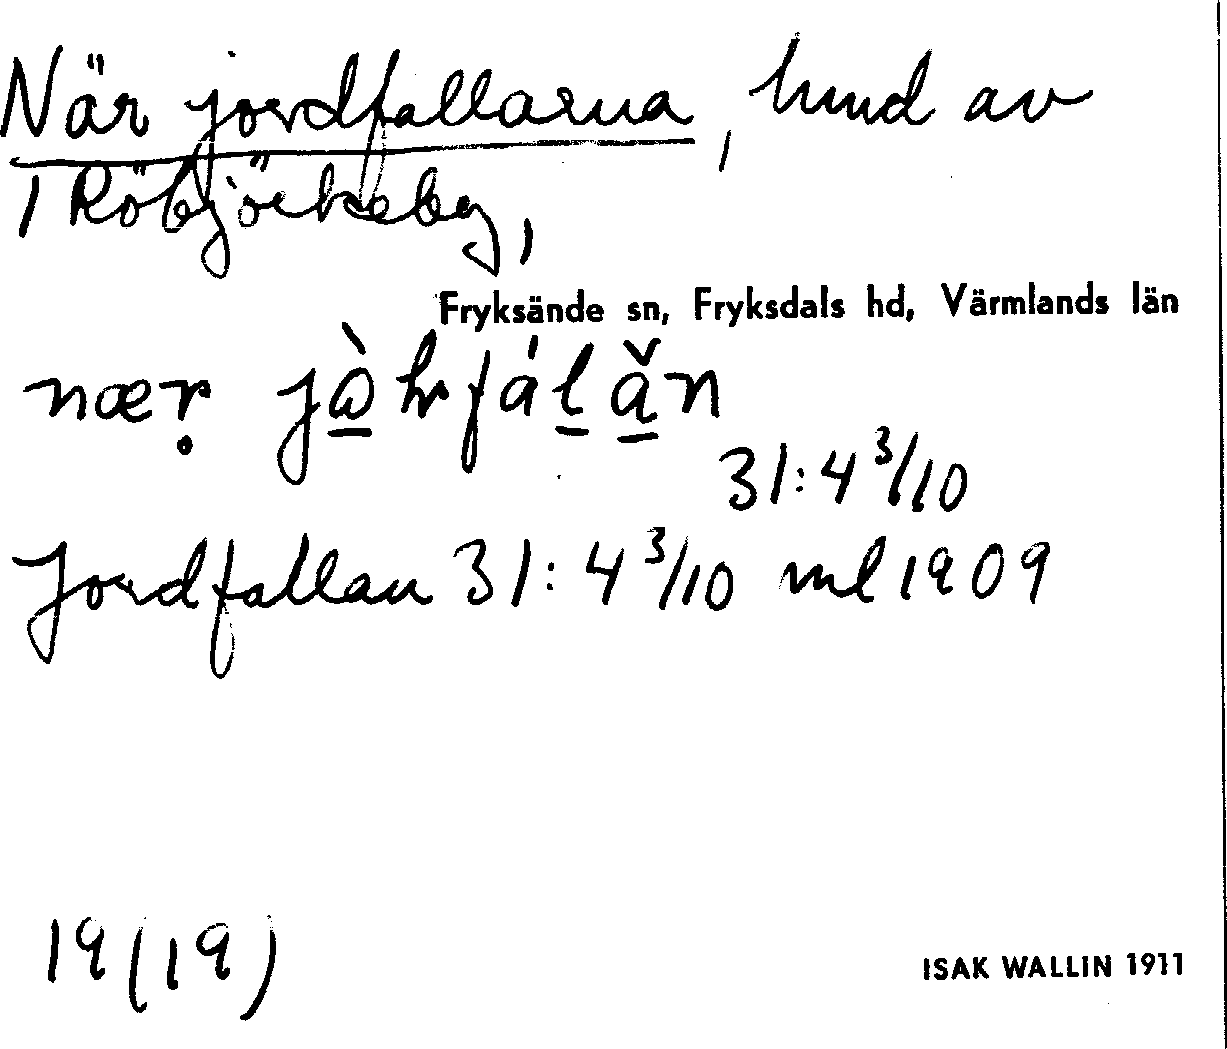 När jordfallarna, hmd av
1 Röbjörkeby,
Fryksände sn, Fryksdals hd, Värmlands län
nær
31:4 3/10
Jordfallan 31:4 3/10 ml 1909
19(19)
ISAK WALLIN 1911